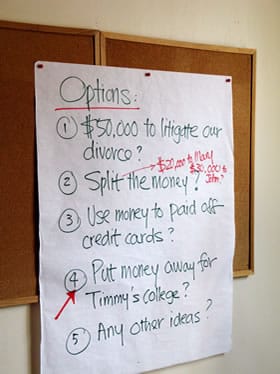 Options:
① $50,000 to litigate our
divorce?
$20,000 to Mary
② Split the money? $30,000 to
John?
③ Use money to paid off
credit cards?
④ Put money away for
Timmy's college?
⑤ Any other ideas?